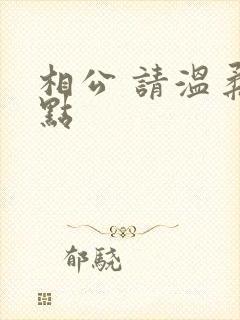 相公 請溫柔
點
郁驍